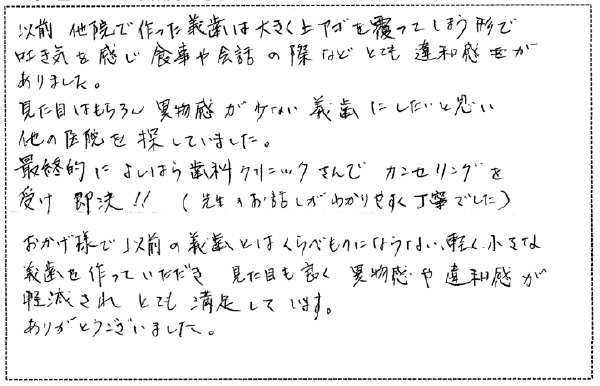 以前 他院で作った義歯は大きく上アゴを覆ってしまう形で
吐き気を感じ 食事や会話の際などとても違和感が
ありました。
見た目はもちろん異物感が少ない義歯にしたいと思い
他の医院を探していました。
最終的によしはら歯科クリニックさんでカンセリングを
受け 即決!! (先生のお話しがわかりやすく丁寧でした)
おかげ様で以前の義歯とはくらべものにならない、軽く、小さな
義歯を作っていただき 見た目も良く 異物感や違和感が
軽減され とても満足しています。
ありがとうございました。